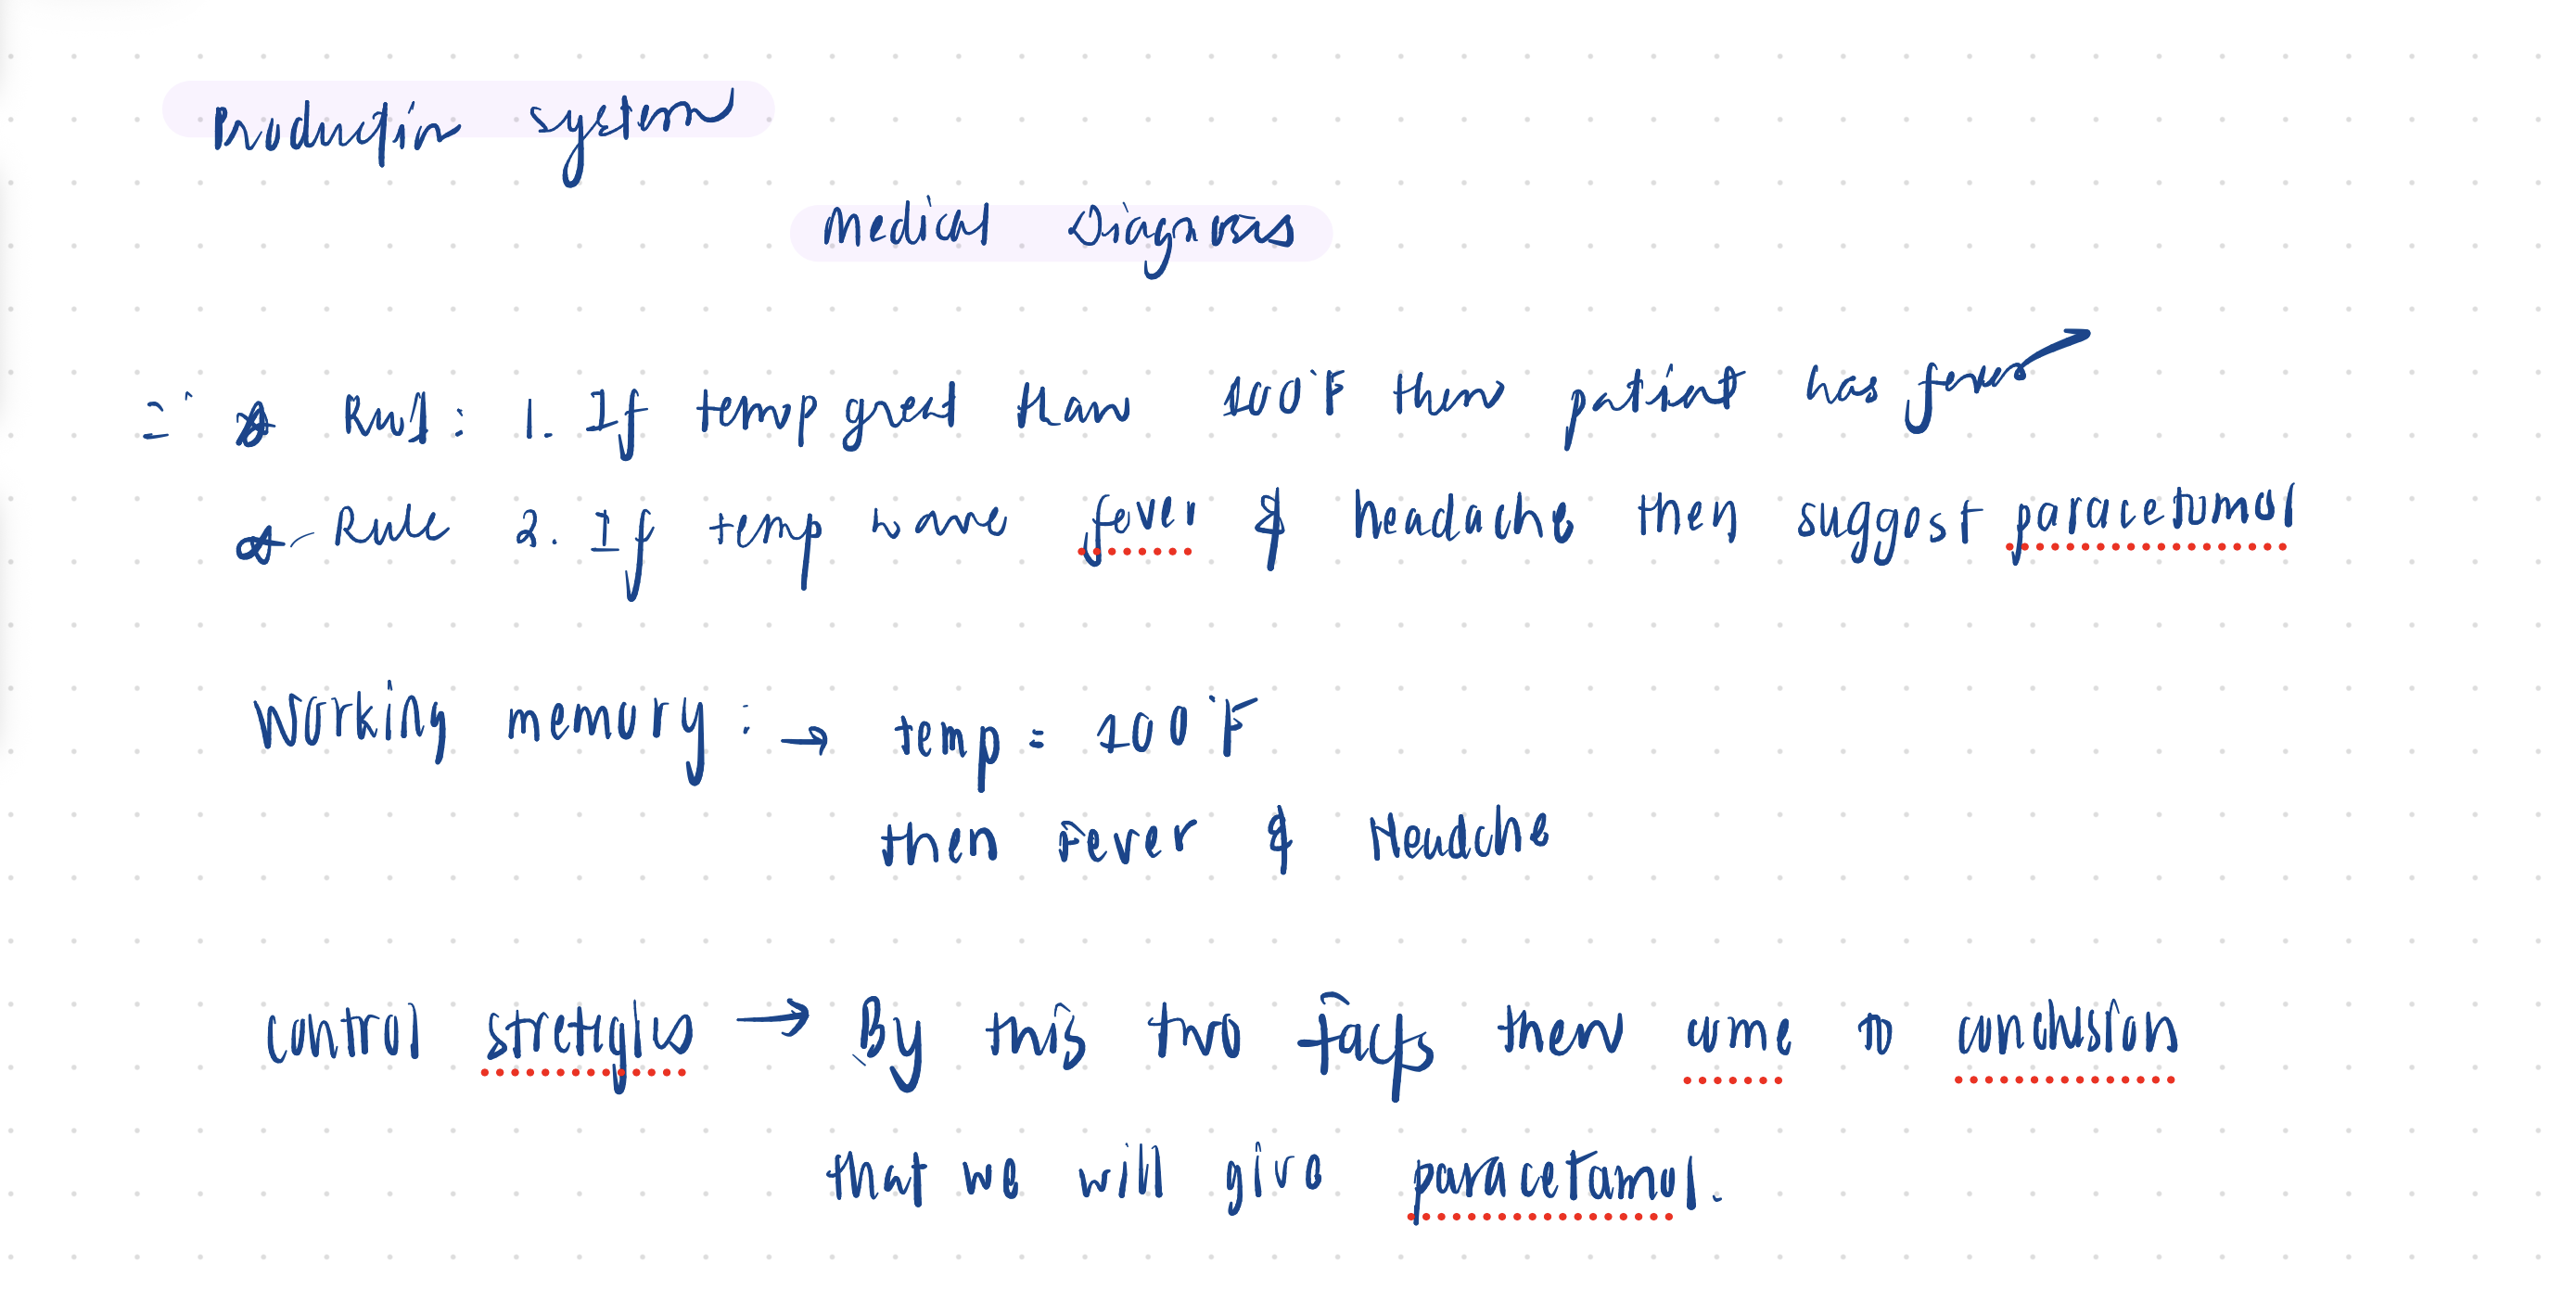 Production system
Medical Diagnosis
Rul: 1. If temp great than 100°F then patient has fever
Rule 2. If temp have fever & headache then suggest paracetamol
Working memory: → temp = 100°F
then Fever & Headche
control stretigies → By this two facts then come to conclusion
that we will give paracetamol.